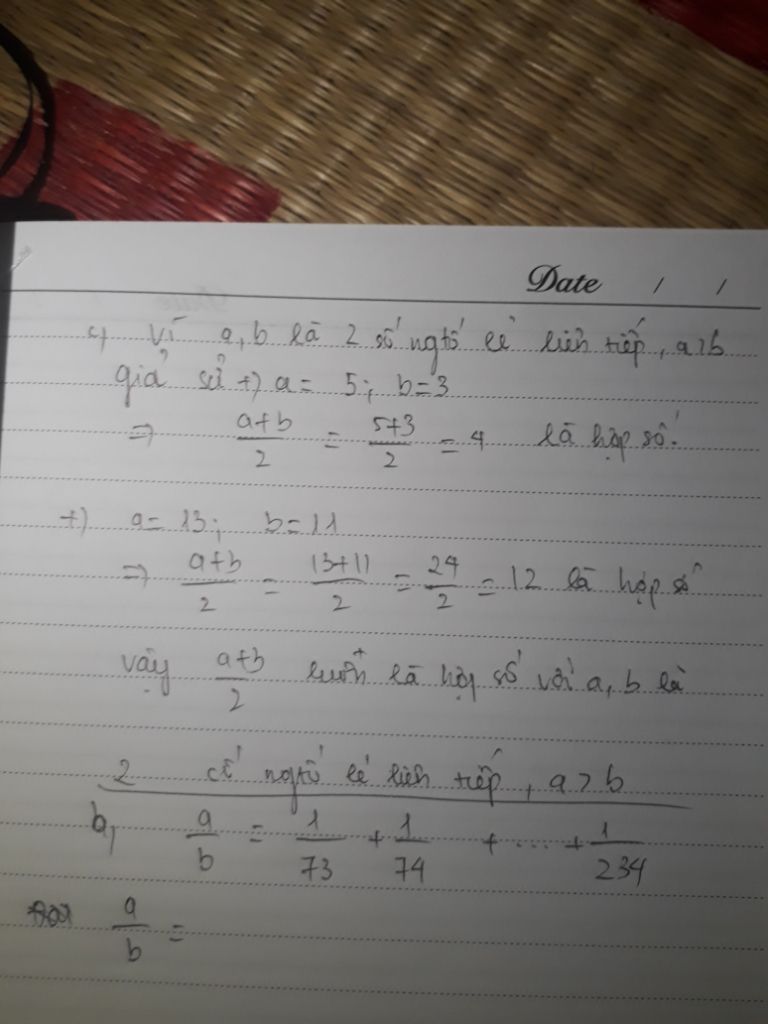 Date / /
c) Vì a, b là 2 số ngtố lẻ liên tiếp, a > b
giả sử +) a = 5; b = 3
=> a+b/2 = 5+3/2 = 4 là hợp số.
+) a = 13; b = 11
=> a+b/2 = 13+11/2 = 24/2 = 12 là hợp số
vậy a+b/2 luôn là hợp số với a, b là
2 số ngtố lẻ liên tiếp, a > b
b, a/b = 1/73 + 1/74 + ... + 1/234
a/b =